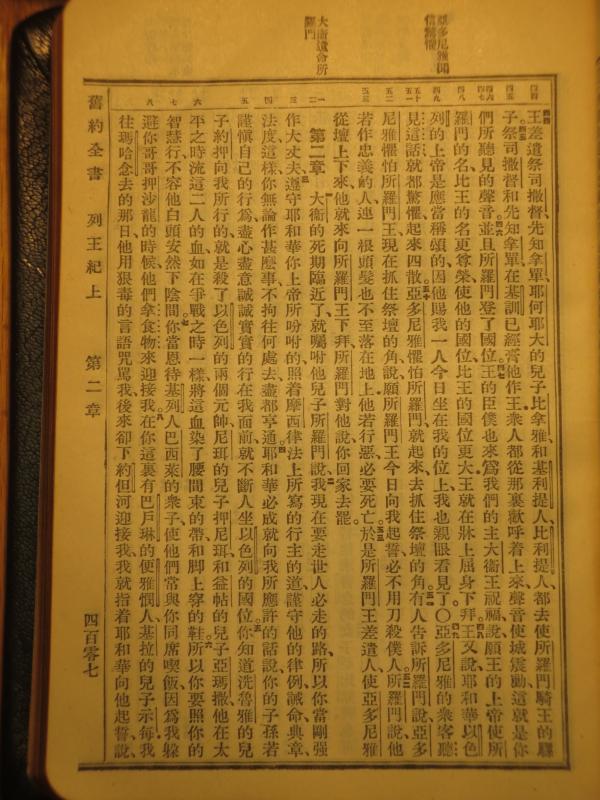 亞多尼雅聞信驚懼
大衛遺命所羅門
王差遣祭司撒督先知拿單耶何耶大的兒子比拿雅和基利提人比利提人都去使所羅門騎王的騾
子祭司撒督和先知拿單在基訓已經膏他作王衆人都從那裏歡呼着上來聲音使城震動這就是你
們所聽見的聲音並且所羅門登了國位王的臣僕也來爲我們的主大衛王祝福說願王的上帝使所
羅門的名比王的名更尊榮使他的國位比王的國位更大王就在牀上屈身下拜王又說耶和華以色
列的上帝是應當稱頌的因他賜我一人今日坐在我的位上我也親眼看見了〇亞多尼雅的衆客聽
見這話就都驚懼起來四散亞多尼雅懼怕所羅門就起來去抓住祭壇的角有人告訴所羅門說亞多
尼雅懼怕所羅門王現在抓住祭壇的角說願所羅門王今日向我起誓必不用刀殺僕人所羅門說他
若作忠義的人連一根頭髮也不至落在地上他若行惡必要死亡於是所羅門王差遣人使亞多尼雅
從壇上下來他就來向所羅門王下拜所羅門對他說你回家去罷
第二章 大衛的死期臨近了就囑咐他兒子所羅門說我現在要走世人必走的路所以你當剛強
作大丈夫遵守耶和華你上帝所吩咐的照着摩西律法上所寫的行主的道謹守他的律例誡命典章
法度這樣你無論作甚麼事不拘往何處去盡都亨通耶和華必成就向我所應許的話說你的子孫若
謹愼自己的行爲盡心盡意誠誠實實的行在我面前就不斷人坐以色列的國位你知道洗魯雅的兒
子約押向我所行的就是殺了以色列的兩個元帥尼珥的兒子押尼珥和益帖的兒子亞瑪撒他在太
平之時流這二人的血如在爭戰之時一樣將這血染了腰間束的帶和脚上穿的鞋所以你要照你的
智慧行不容他白頭安然下陰間你當恩待基列人巴西萊的衆子使他們常與你同席喫飯因爲我躱
避你哥哥押沙龍的時候他們拿食物來迎接我在你這裏有巴戶琳的便雅憫人基拉的兒子示每我
往瑪哈念去的那日他用狠毒的言語咒罵我後來卻下約但河迎接我我就指着耶和華向他起誓說
舊約全書 列王紀上 第二章 四百零七